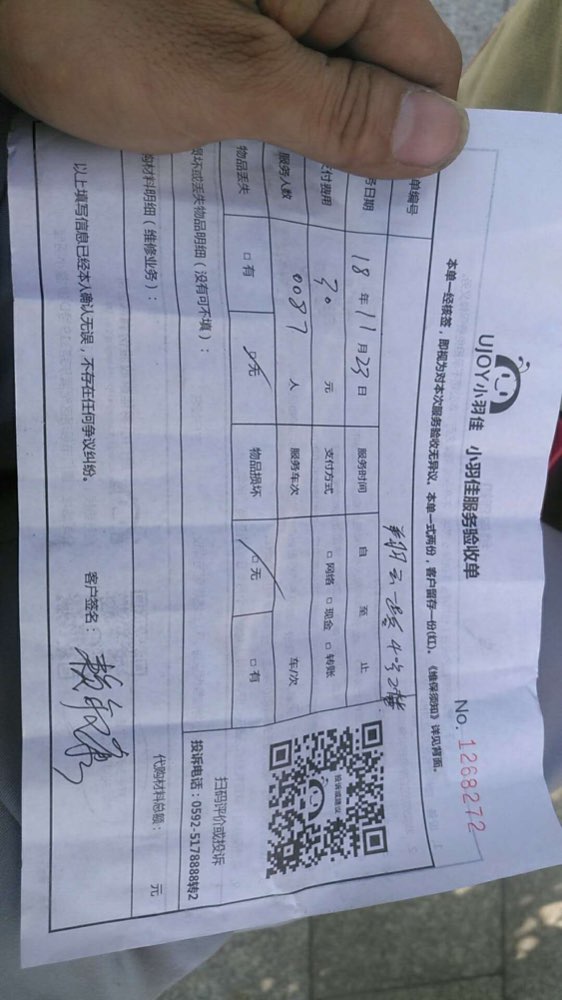 UJOY小羽佳 小羽佳服务验收单
No. 1268272
本单一经核签，即视为对本次服务验收无异议。本单一式两份，客户留存一份(红)。《维保须知》详见背面。
单编号
务日期 18 年 11 月 23 日 服务时间 自 至 止
付费用 30 元 支付方式 □ 网络 □ 现金 □ 转账
服务人数 0087 人 服务车次 车/次
物品丢失 □ 有 □ 无 物品损坏 □ 无 □ 有
损坏或丢失物品明细（没有可不填）：
投诉或建议
扫码评价或投诉
投诉电话：0592-5178888转2
购材料明细（维修业务）：
代购材料总额： 元
以上填写信息已经本人确认无误，不存在任何争议纠纷。
客户签名：